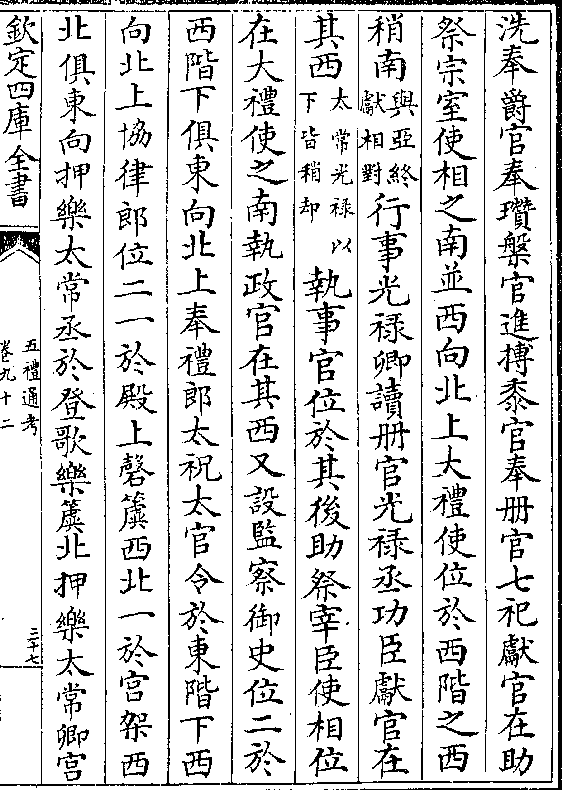 洗奉爵官奉瓚槃官進摶黍官奉册官七祀獻官在助
祭宗室使相之南並西向北上大禮使位於西階之西
稍南與亞終獻相對行事光禄卿讀册官光禄丞功臣獻官在
其西太常光禄以下皆稍却執事官位於其後助祭宰臣使相位
在大禮使之南執政官在其西又設監察御史位二於
西階下俱東向北上奉禮郎太祝太官令於東階下西
向北上協律郎位二一於殿上磬簴西北一於宫架西
北俱東向押樂太常丞於登歌樂簴北押樂太常卿宫
欽定四庫全書
五禮通考
卷九十二
三十七